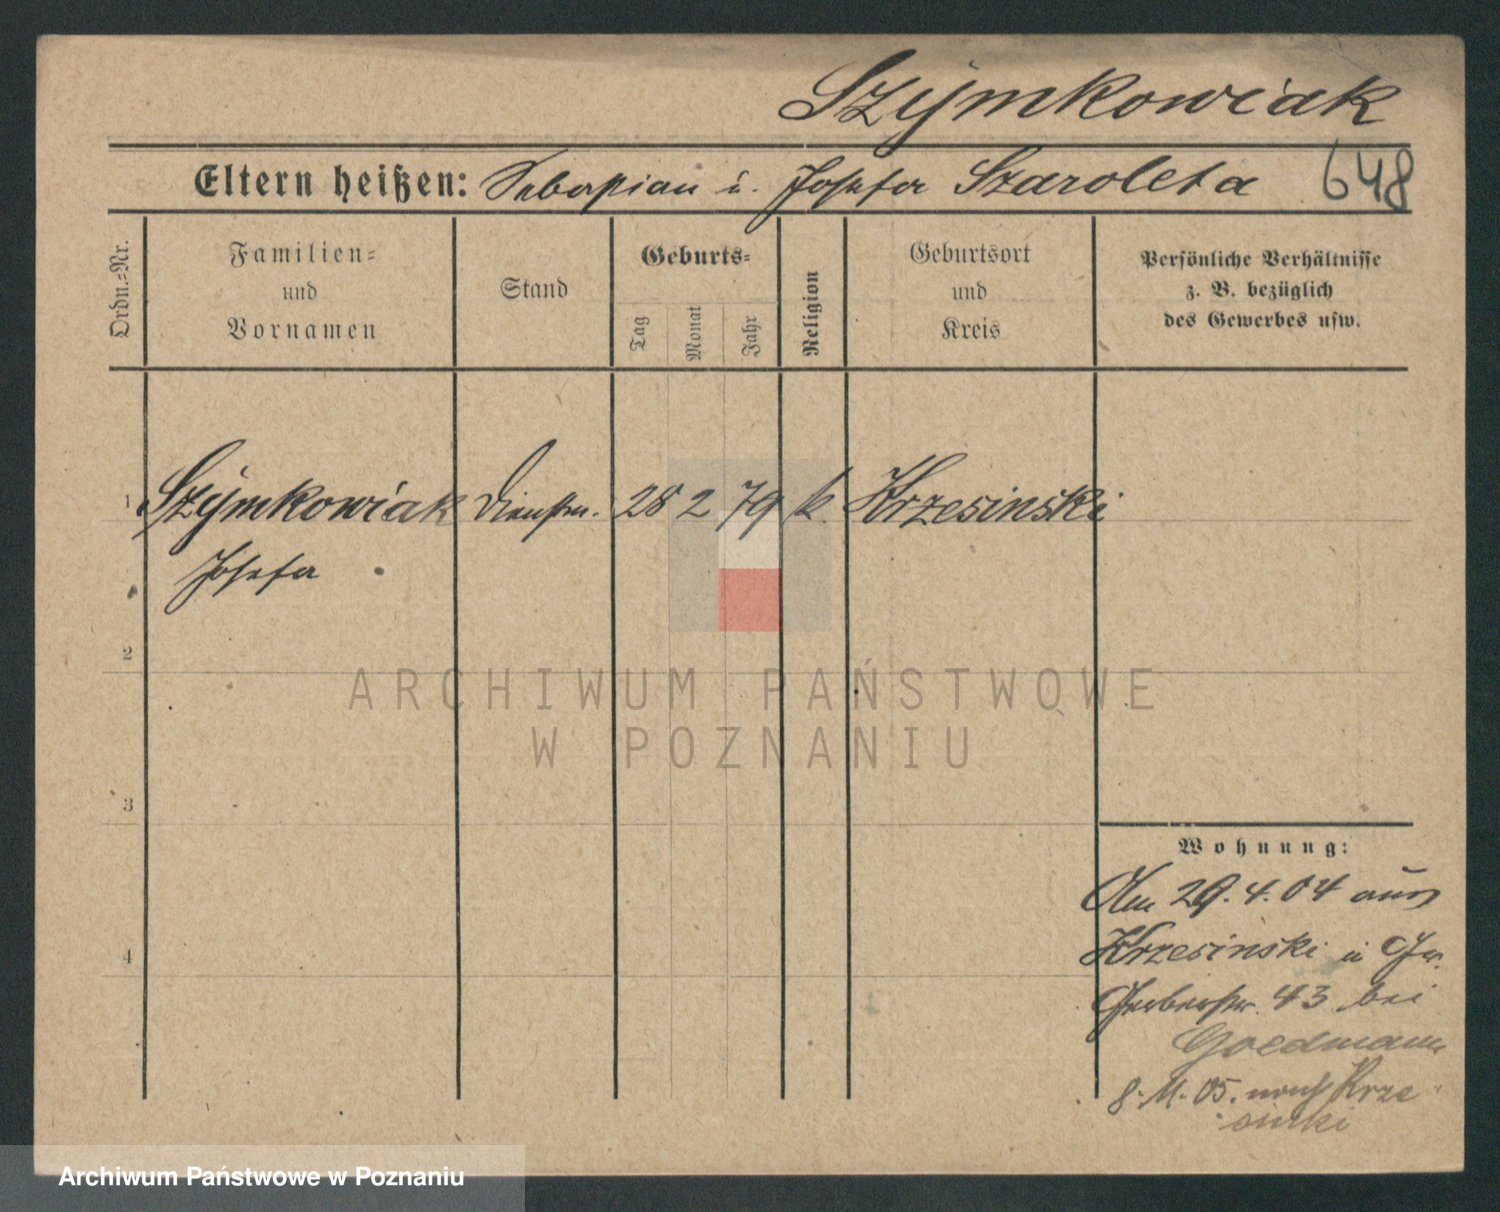 Szymkowiak
Eltern heißen: Sebastian u. Josefa Szaroleta
648
Ordn.-Nr.
Familien-
und
Vornamen
Stand
Geburts-
Tag
Monat
Jahr
Religion
Geburtsort
und
Kreis
Persönliche Verhältnisse
z. B. bezüglich
des Gewerbes usw.
1 Szymkowiak Dienstm. 28 2 79 k. Krzesinski
Josefa
2
3
4
Wohnung:
Am 29.4.04 aus
Krzesinski in Gr.
Gerberstr. 43 bei
Goedmann
8.11.05. nach Krze-
sinki
ARCHIWUM PAŃSTWOWE
W POZNANIU
Archiwum Państwowe w Poznaniu